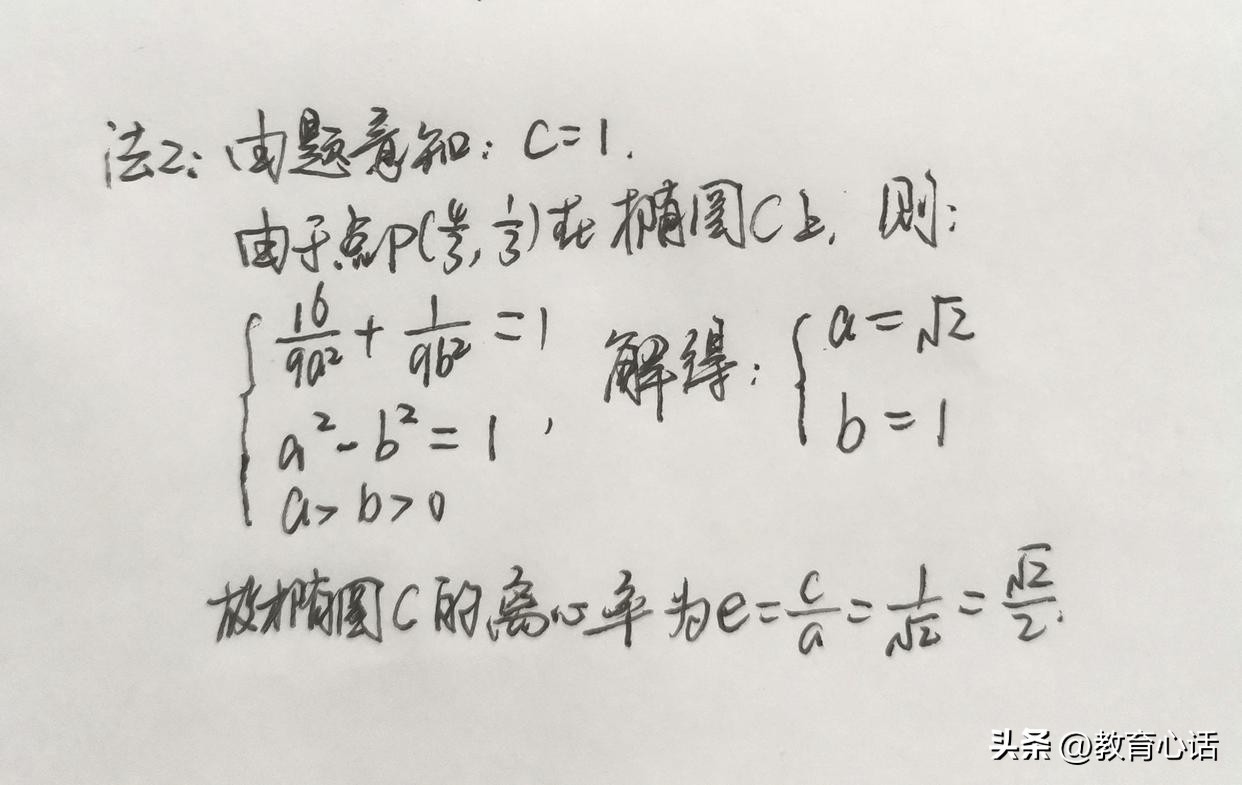 法2: 由题意知: C=1.
由于点P(4/3, 1/3)在椭圆C上, 则:
{ 16/9a² + 1/9b² = 1
a² - b² = 1 , 解得: { a = √2
a > b > 0 b = 1
故椭圆C的离心率为e = c/a = 1/√2 = √2/2.
头条 @教育心话